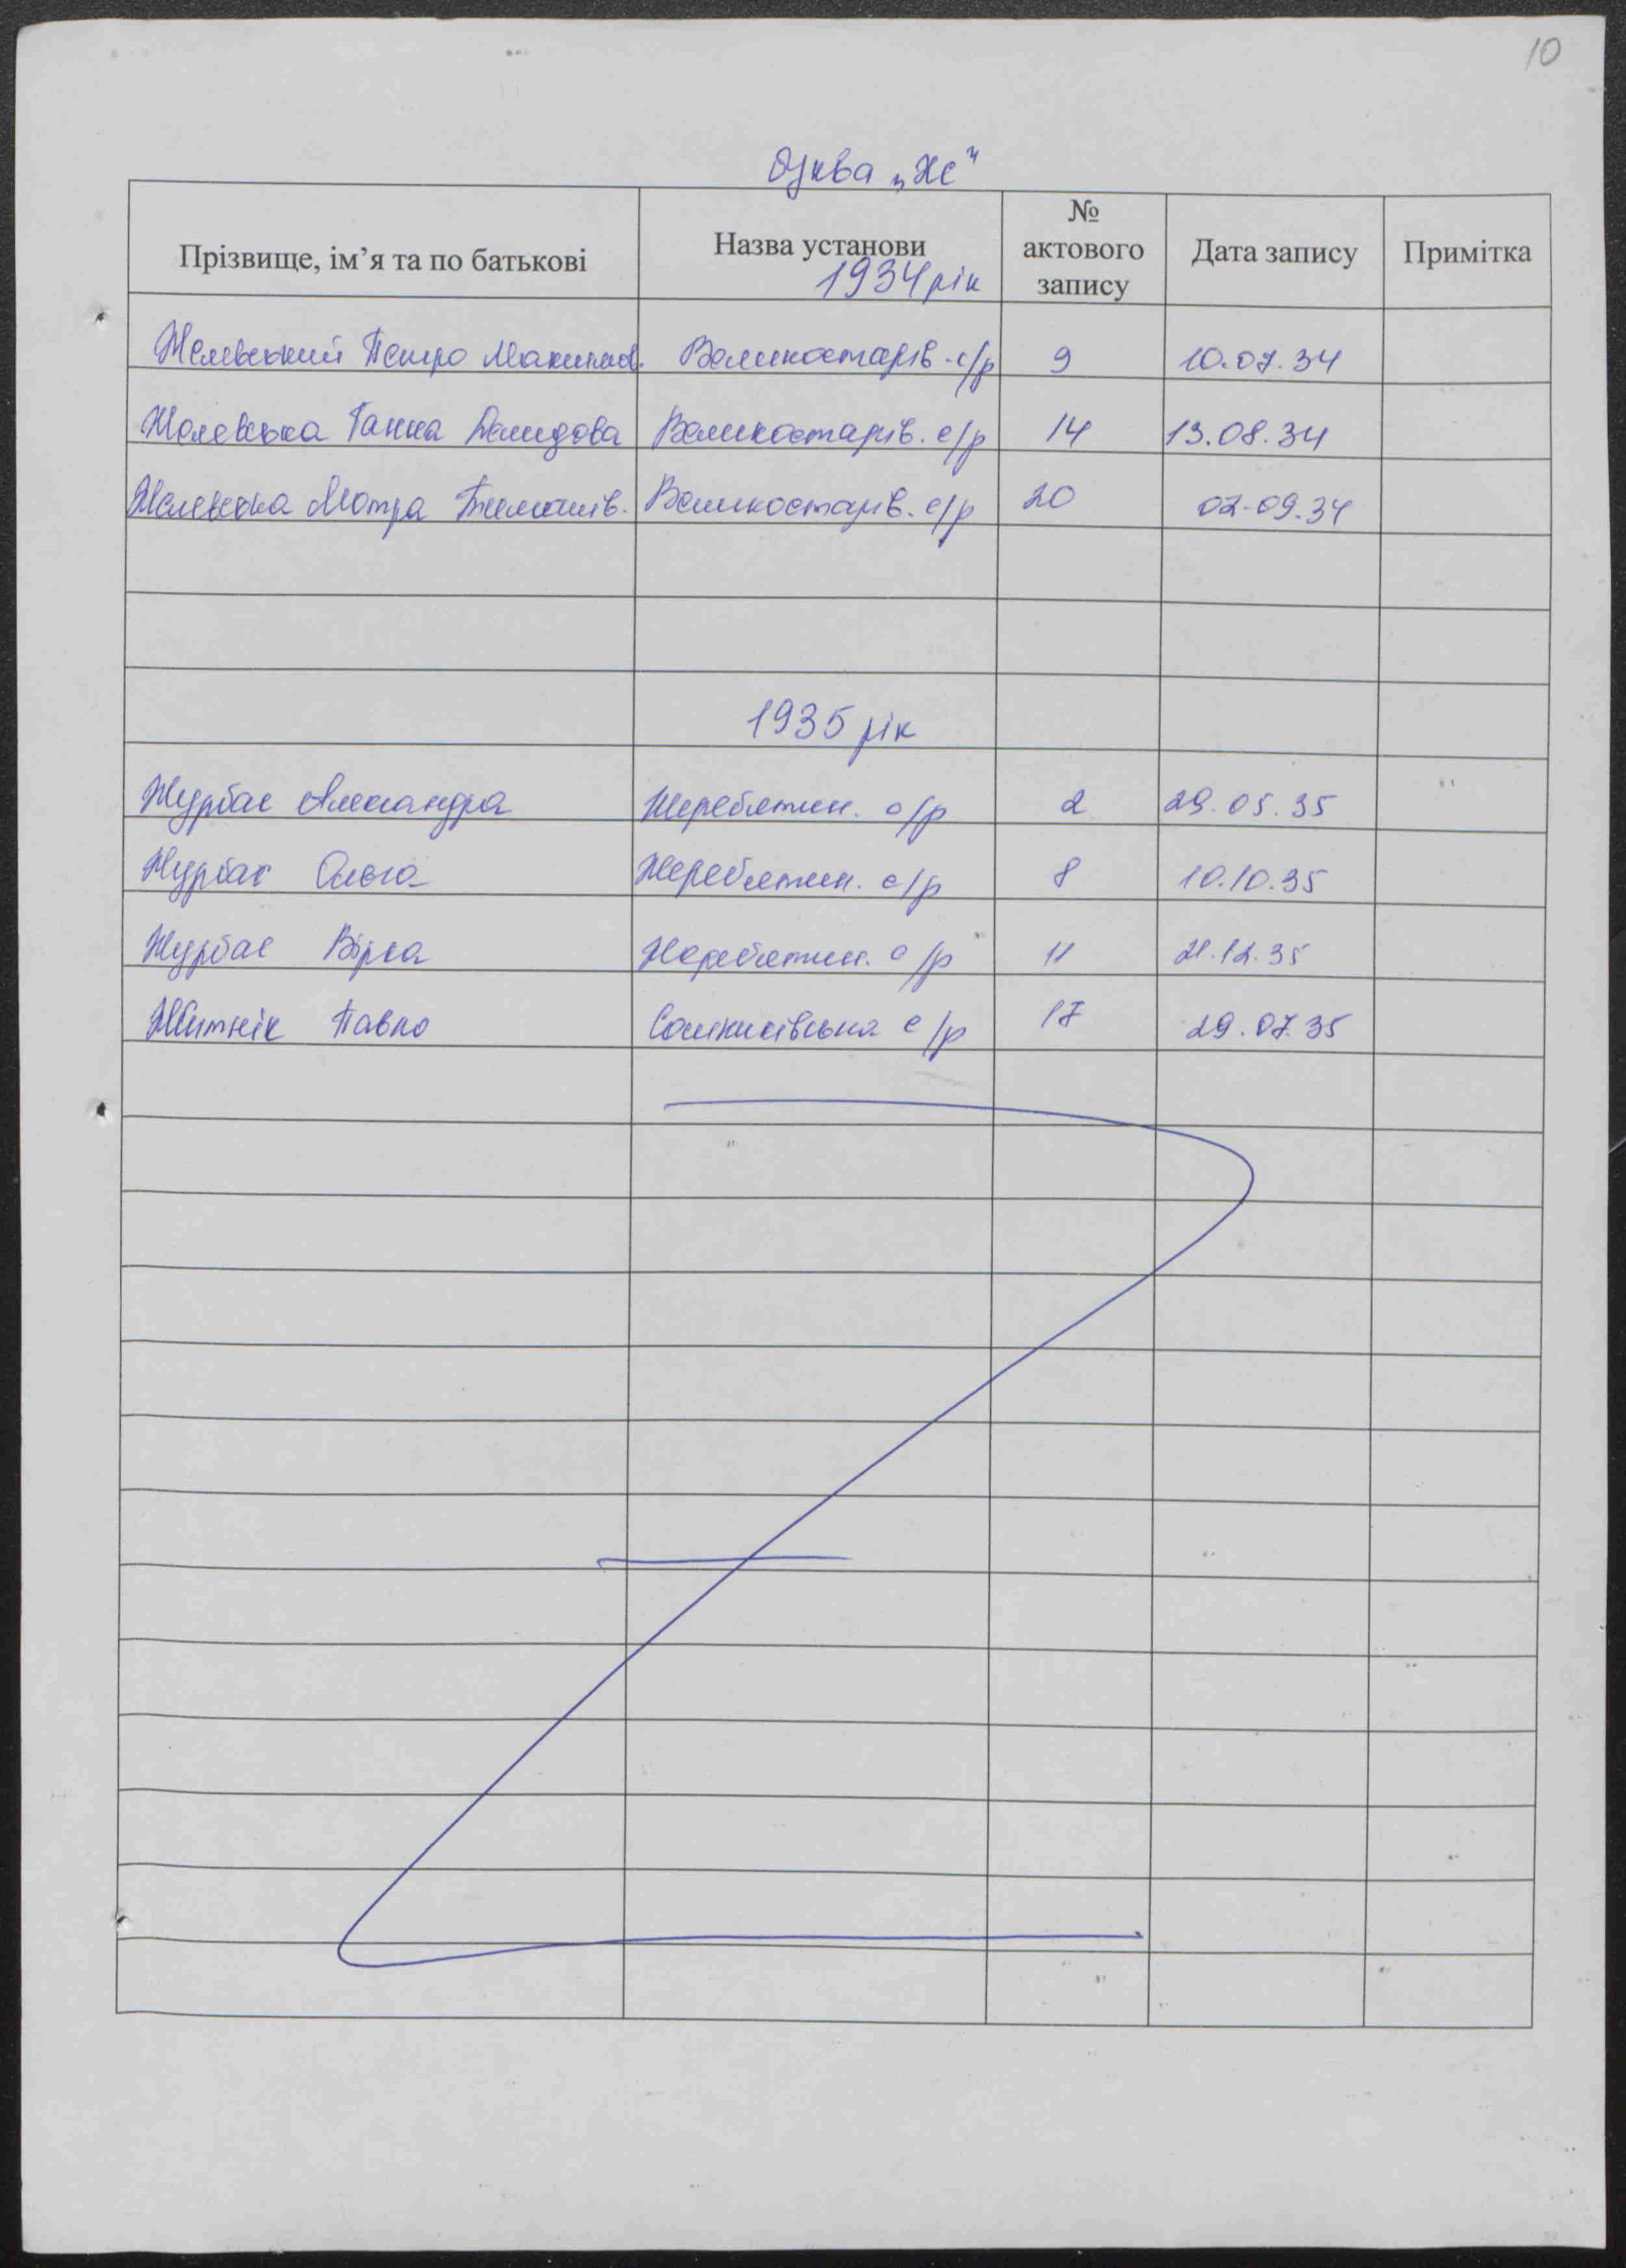 10
буква „Ж"
Прізвище, ім'я та по батькові Назва установи № актового запису Дата запису Примітка
1934 рік
Желевський Петро Великостарів. с/р 9 10.07.34
Желевська Ганна Демидова Великостарів. с/р 14 13.08.34
Желевська Мотра Великостарів. с/р 20 02.09.34
1935 рік
Журбас Александра Жеребятин. с/р 2 29.05.35
Журбас Ольга Жеребятин. с/р 8 10.10.35
Журбас Вірка Жеребятин. с/р 11 21.12.35
Житнік Павло с/р 17 29.07.35